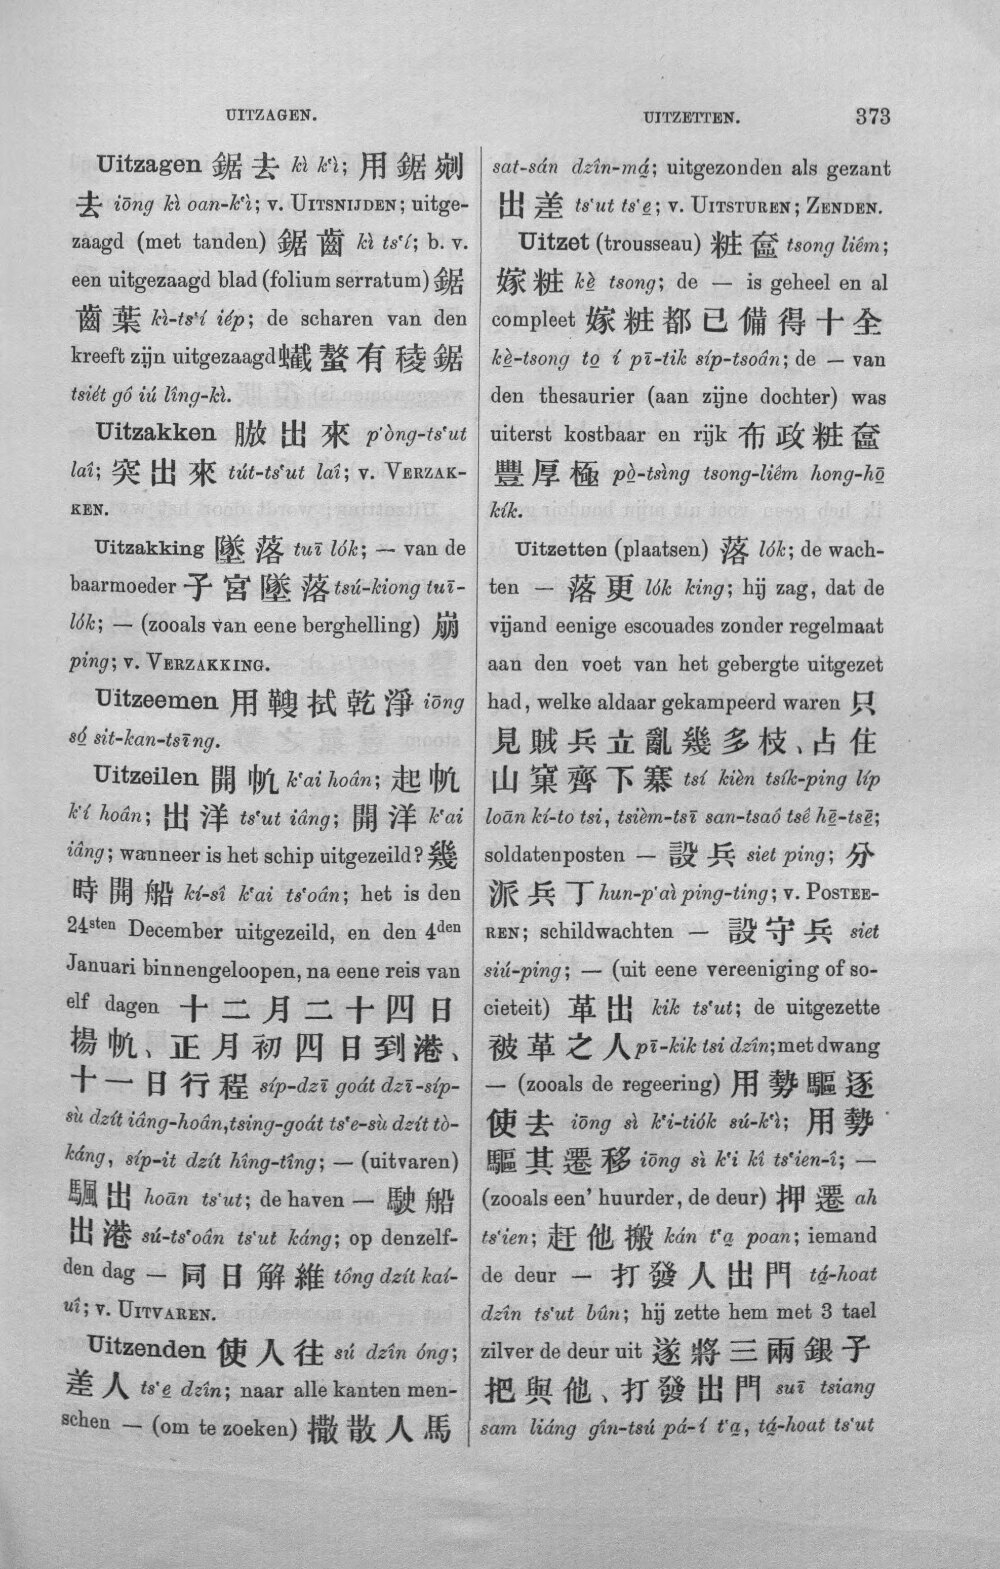 UITZAGEN.
UITZETTEN. 373
Uitzagen 鋸去 kì kʻì; 用鋸剜
去 iōng kì oan-kʻì; v. UITSNIJDEN; uitge-
zaagd (met tanden) 鋸齒 kì tsʻí; b. v.
een uitgezaagd blad (folium serratum) 鋸
齒葉 kì-tsʻí iép; de scharen van den
kreeft zijn uitgezaagd 蠘螯有稜鋸
tsiét gô iú lîng-kì.
Uitzakken 放出來 pʻòng-tsʻut
laî; 突出來 tút-tsʻut laî; v. VERZAK-
KEN.
Uitzakking 墜落 tuī lók; — van de
baarmoeder 子宮墜落 tsú-kiong tuī-
lók; — (zooals van eene berghelling) 崩
ping; v. VERZAKKING.
Uitzeemen 用鞭拭乾淨 iōng
só sit-kan-tsīng.
Uitzeilen 開帆 kʻai hoân; 起帆
kʻí hoân; 出洋 tsʻut iâng; 開洋 kʻai
iâng; wanneer is het schip uitgezeild? 幾
時開船 kí-sî kʻai tsʻoân; het is den
24sten December uitgezeild, en den 4den
Januari binnengeloopen, na eene reis van
elf dagen 十二月二十四日
揚帆、正月初四日到港、
十一日行程 síp-dzī goát dzī-síp-
sù dzít iâng-hoân, tsing-goát tsʻe-sù dzít tò-
káng, síp-it dzít hîng-tîng; — (uitvaren)
颿出 hoān tsʻut; de haven — 駛船
出港 sú-tsʻoân tsʻut káng; op denzelf-
den dag — 同日解維 tông dzít kaí-
uî; v. UITVAREN.
Uitzenden 使人往 sú dzîn óng;
差人 tsʻe̱ dzîn; naar alle kanten men-
schen — (om te zoeken) 撒散人馬
sat-sán dzîn-má̱; uitgezonden als gezant
出差 tsʻut tsʻe̱; v. UITSTUREN; ZENDEN.
Uitzet (trousseau) 粧奩 tsong liêm;
嫁粧 kè̱ tsong; de — is geheel en al
compleet 嫁粧都已備得十全
kè̱-tsong to̱ í pī-tik síp-tsoân; de — van
den thesaurier (aan zijne dochter) was
uiterst kostbaar en rijk 布政粧奩
豐厚極 pò̱-tsìng tsong-liêm hong-hō̱
kík.
Uitzetten (plaatsen) 落 lók; de wach-
ten — 落更 lók king; hij zag, dat de
vijand eenige escouades zonder regelmaat
aan den voet van het gebergte uitgezet
had, welke aldaar gekampeerd waren 只
見賊兵立亂幾多枝、占住
山窠齊下寨 tsí kièn tsík-ping líp
loān kí-to tsi, tsièm-tsī san-tsaô tsê hē̱-tsē̱;
soldatenposten — 設兵 siet ping; 分
派兵丁 hun-pʻaì ping-ting; v. POSTEE-
REN; schildwachten — 設守兵 siet
siú-ping; — (uit eene vereeniging of so-
cieteit) 革出 kik tsʻut; de uitgezette
被革之人 pī-kik tsi dzîn; met dwang
— (zooals de regeering) 用勢驅逐
使去 iōng sì kʻi-tiók sú-kʻì; 用勢
驅其遷移 iōng sì kʻi kî tsʻien-î; —
(zooals een’ huurder, de deur) 押遷 ah
tsʻien; 赶他搬 kán tʻa̱ poan; iemand
de deur — 打發人出門 tá̱-hoat
dzîn tsʻut bûn; hij zette hem met 3 tael
zilver de deur uit 遂將三兩銀子
把與他、打發出門 suī tsiang
sam liáng gîn-tsú pá-í tʻa̱, tá̱-hoat tsʻut